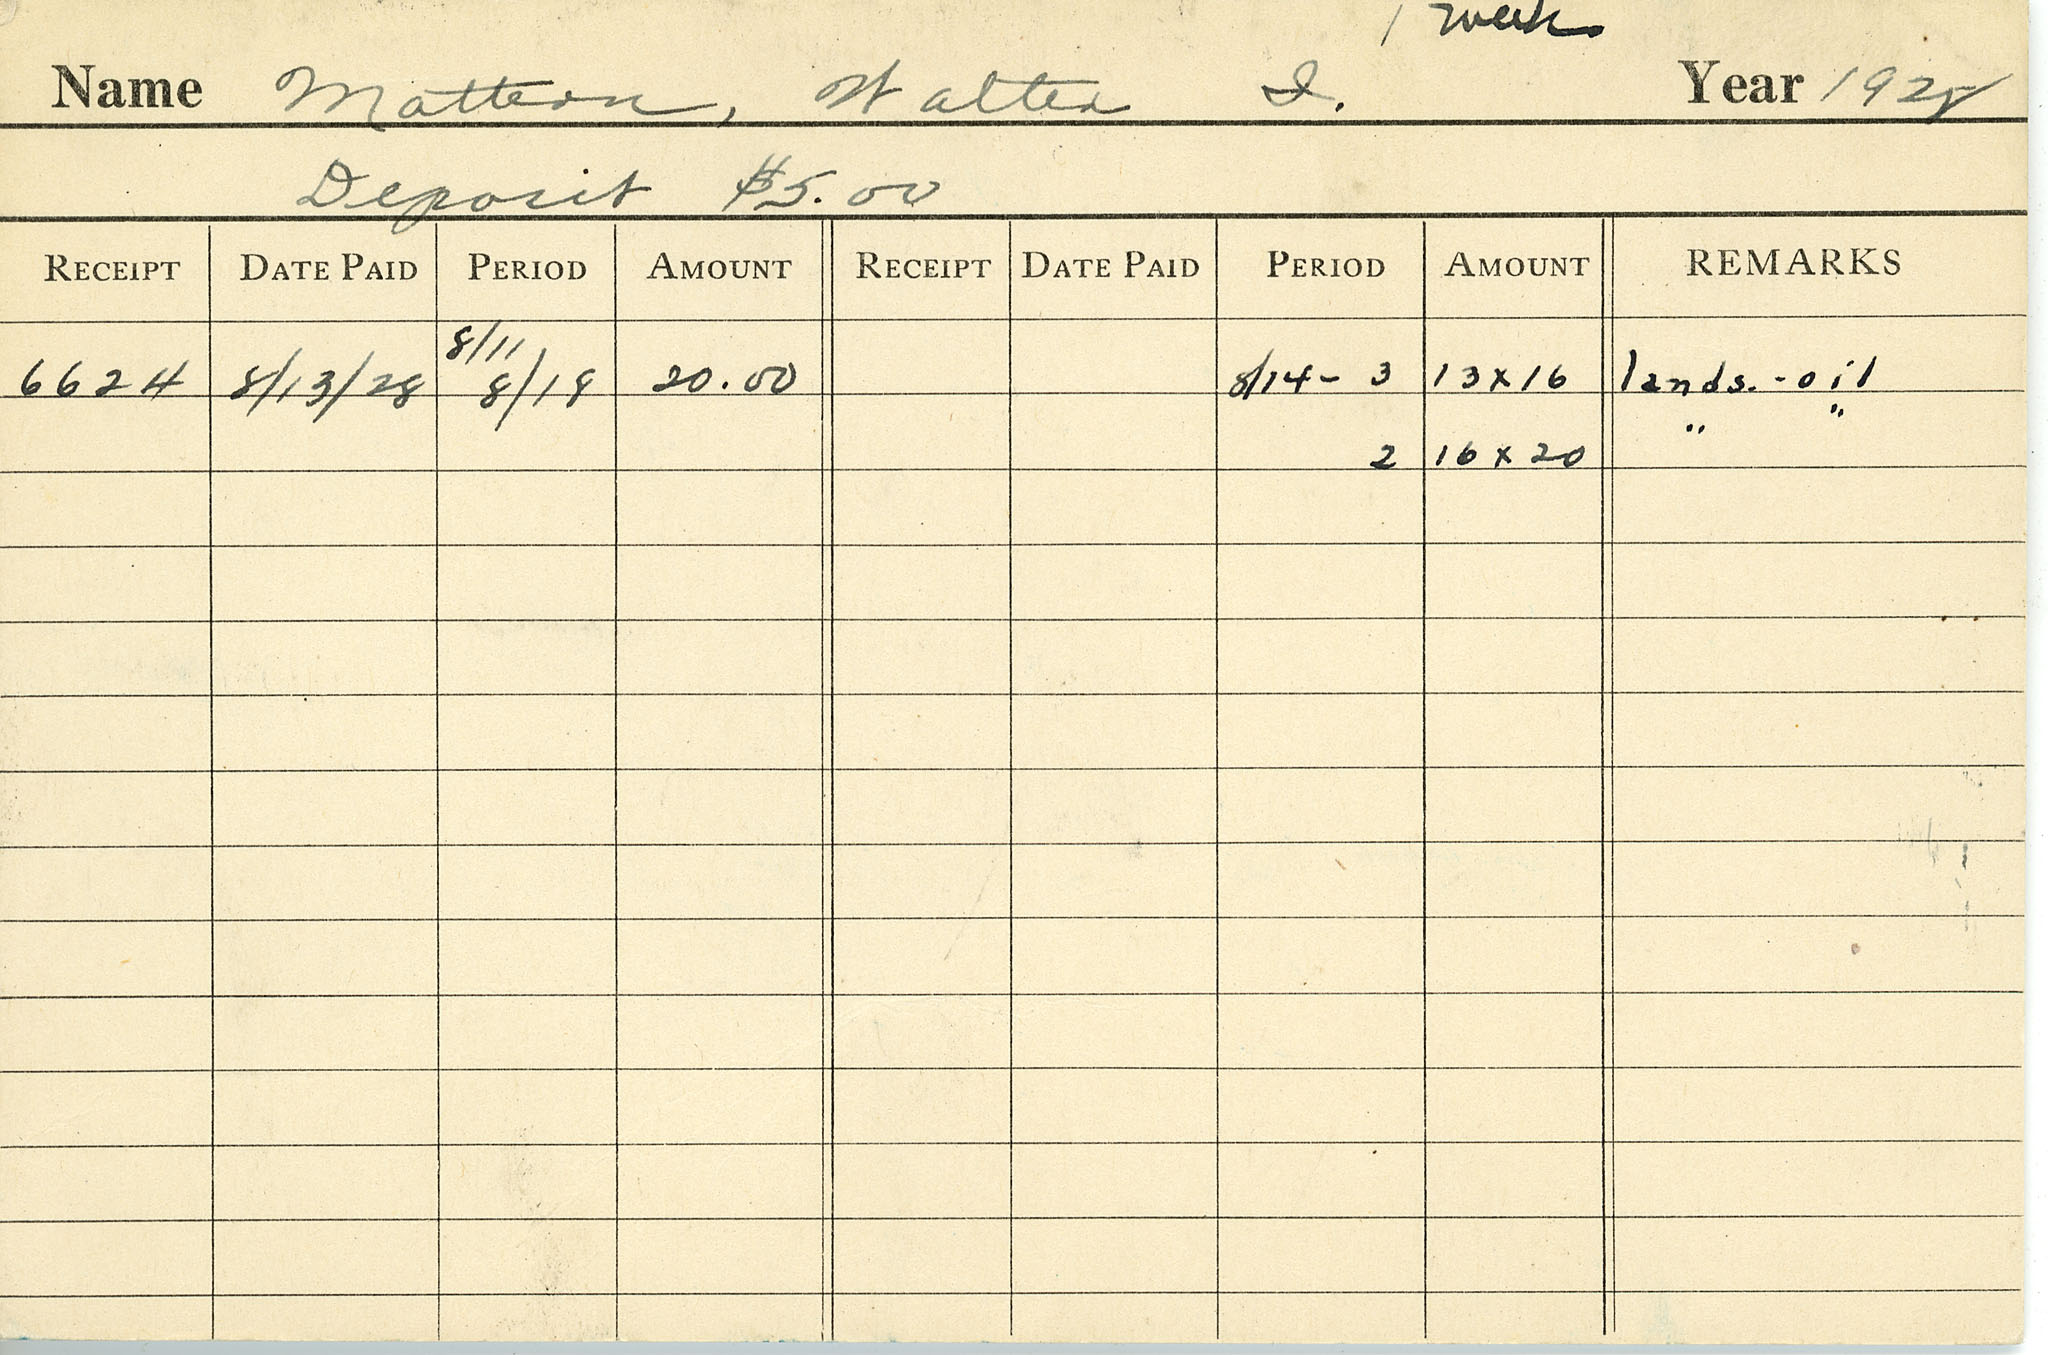 1 week
Name Mattern, Walter I. Year 1928
Deposit $5.00
RECEIPT DATE PAID PERIOD AMOUNT RECEIPT DATE PAID PERIOD AMOUNT REMARKS
8/11
6624 8/13/28 8/18 20.00 8/14- 3 13x16 lands.-oil
2 16x20 " "